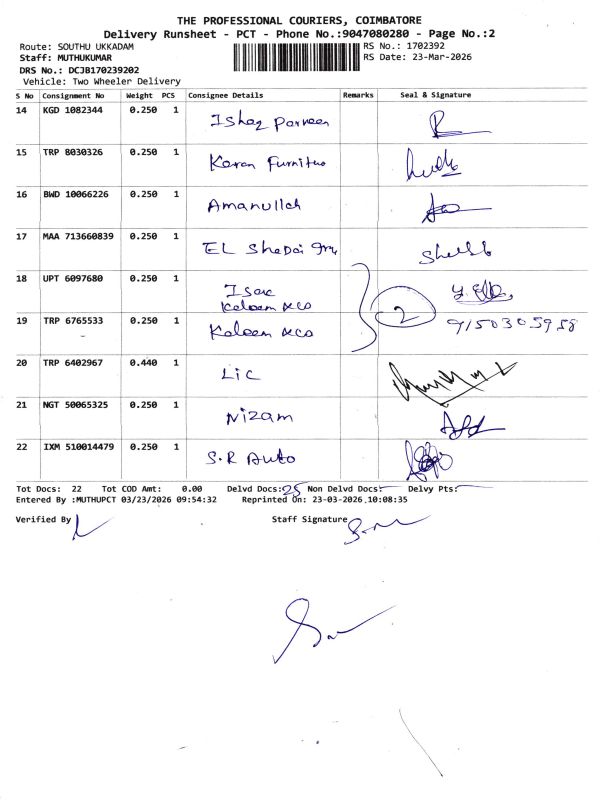 THE PROFESSIONAL COURIERS, COIMBATORE
Delivery Runsheet - PCT - Phone No.:9047080280 - Page No.:2
Route: SOUTHU UKKADAM RS No.: 1702392
Staff: MUTHUKUMAR RS Date: 23-Mar-2026
DRS No.: DCJB170239202
Vehicle: Two Wheeler Delivery
S No Consignment No Weight PCS Consignee Details Remarks Seal & Signature
14 KGD 1082344 0.250 1 Ishaq Parveen
15 TRP 8030326 0.250 1 Karan Furnitue
16 BWD 10066226 0.250 1 Amanullah
17 MAA 713660839 0.250 1 EL Shedai
18 UPT 6097680 0.250 1 Isac
Kaleem &co
19 TRP 6765533 0.250 1 Kaleem &co 2 9150305958
20 TRP 6402967 0.440 1 Lic
21 NGT 50065325 0.250 1 Nizam
22 IXM 510014479 0.250 1 S.R Auto
Tot Docs: 22 Tot COD Amt: 0.00 Delvd Docs: 25 Non Delvd Docs: Delvy Pts:
Entered By :MUTHUPCT 03/23/2026 09:54:32 Reprinted On: 23-03-2026 10:08:35
Verified By Staff Signature